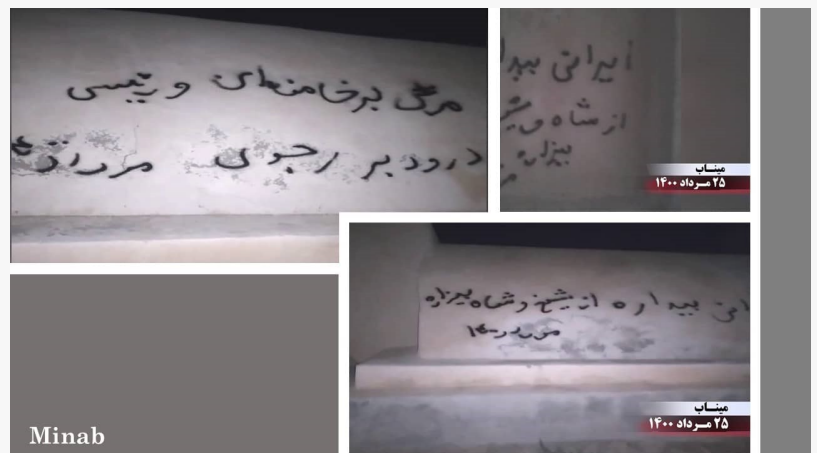 مرگ بر خامنه‌ای و رئیسی
درود بر رجوی مرداد ۱۴۰۰
ایرانی
از شاه و
بیزاره
میناب
۲۵ مرداد ۱۴۰۰
بیداره از شیخ و شاه بیزاره
میناب
۲۵ مرداد ۱۴۰۰
Minab